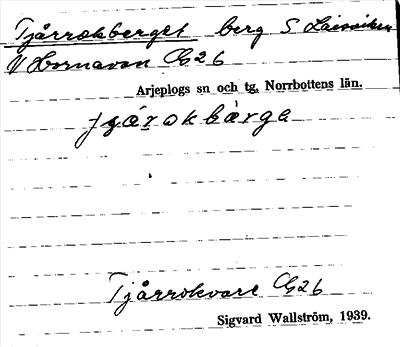 Tjårrokberget berg S Laisviken
V Hornavan C26
Arjeplogs sn och tg. Norrbottens län.
Tjårrokvare C26
Sigvard Wallström, 1939.